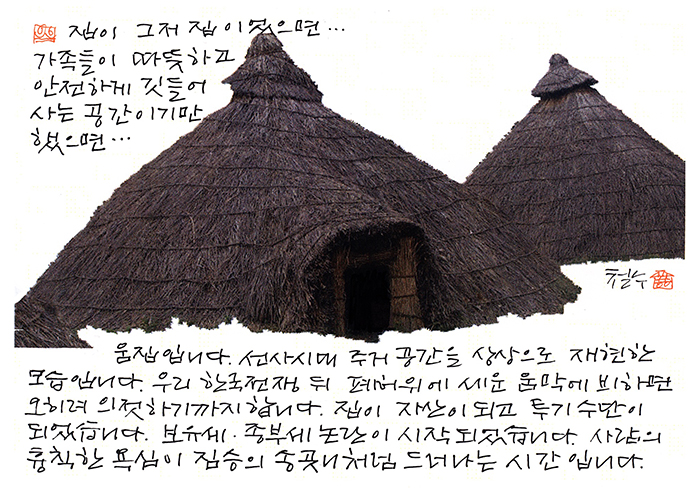 집이 그저 집이었으면…
가족들이 따뜻하고
안전하게 깃들어
사는 공간이기만
했으면…
철수
움집입니다. 선사시대 주거 공간을 상상으로 재현한
모습입니다. 우리 한국전쟁 뒤 폐허위에 세운 움막에 비하면
오히려 의젓하기까지합니다. 집이 자산이 되고 투기수단이
되었습니다. 보유세·종부세 논란이 시작되었습니다. 사람의
흉칙한 욕심이 짐승의 송곳니처럼 드러나는 시간입니다.